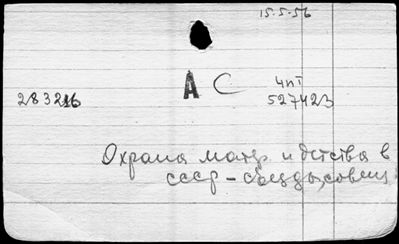 15.5-56
А С
4пт
283216
527423
Охрана матер и детства в
СССР - съезды, совещ